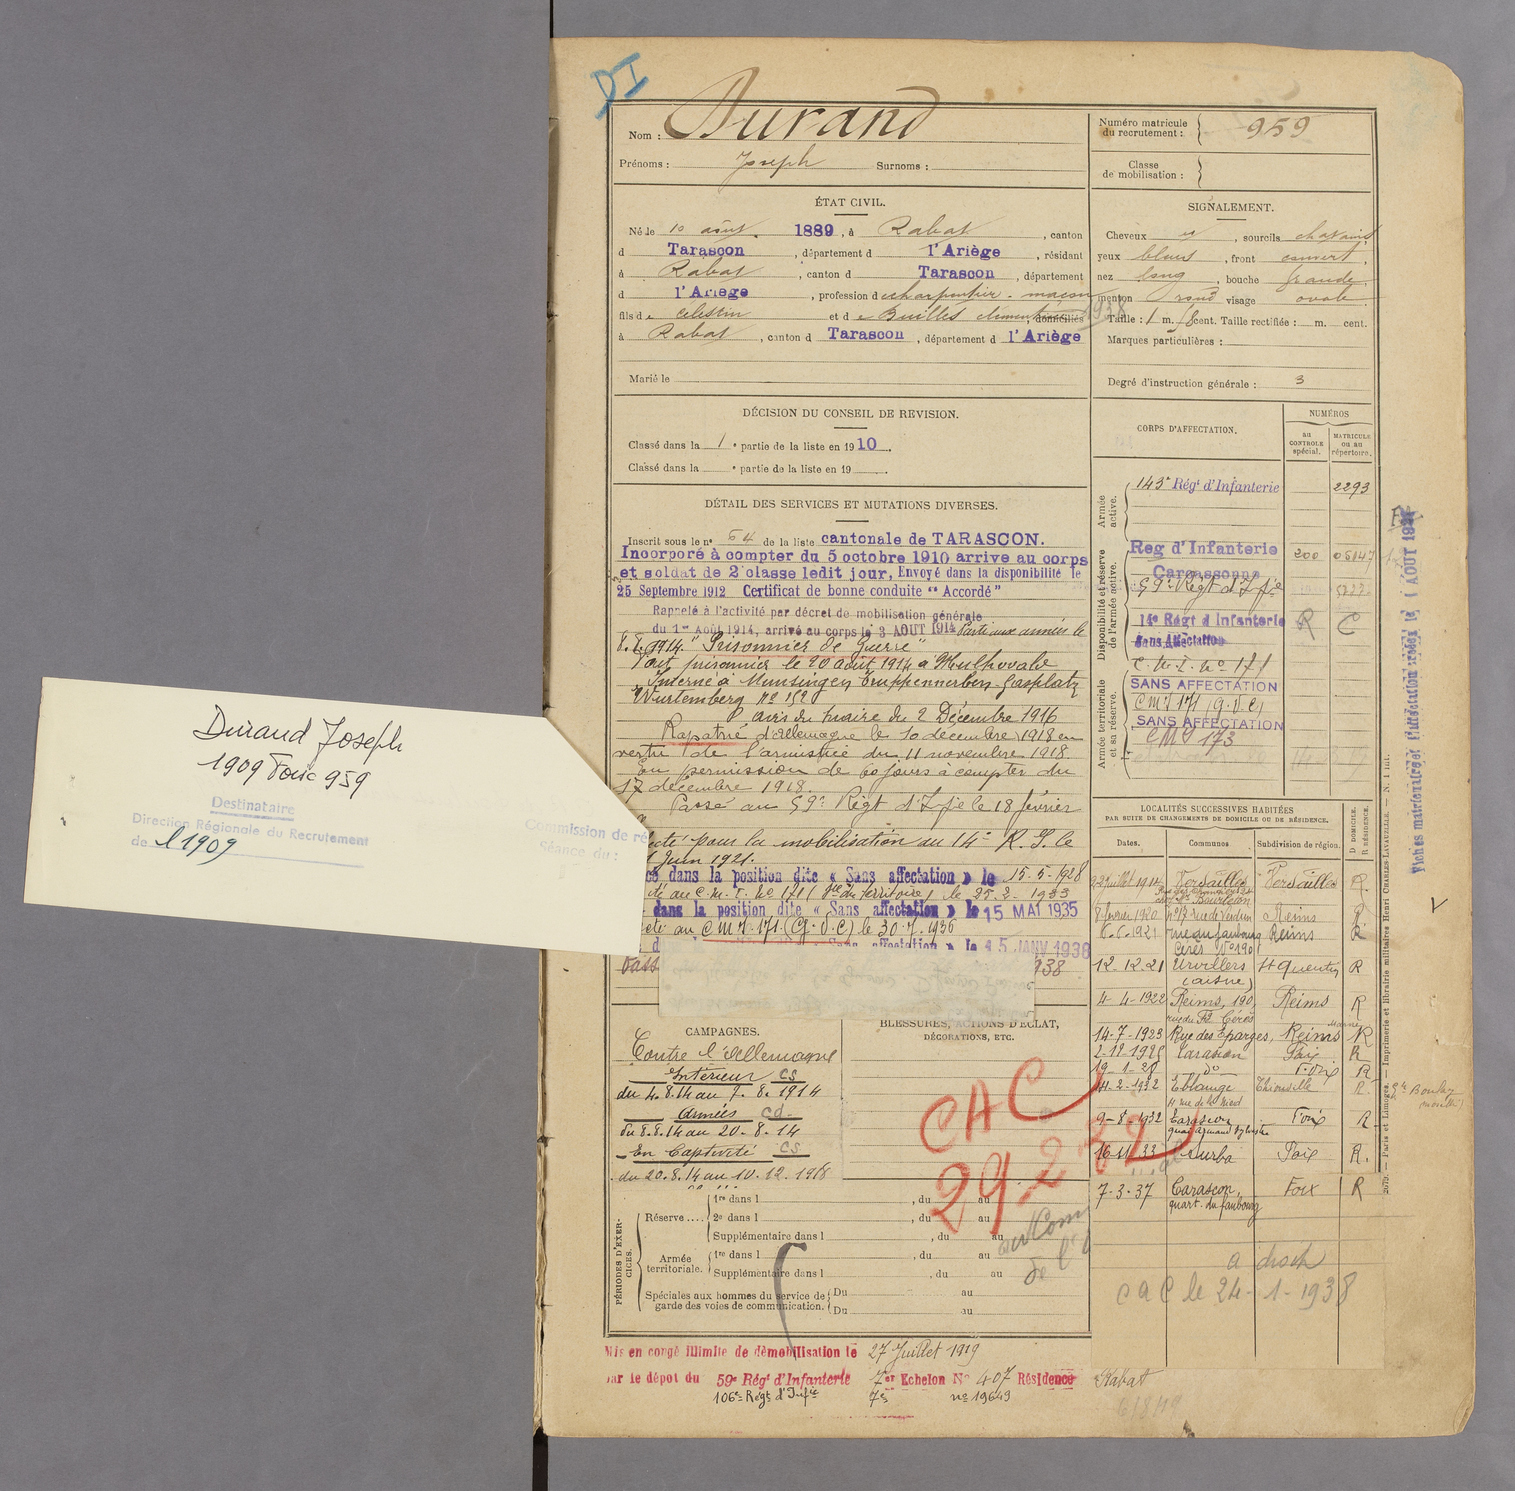 DI
Nom : Durand
Prénoms : Joseph Surnoms :
Numéro matricule du recrutement : 959
Classe de mobilisation :
ÉTAT CIVIL.
Né le 10 août 1889, à Rabat, canton
d Tarascon, département d l'Ariège, résidant
à Rabat, canton d Tarascon, département
d l'Ariège, profession d charpentier - maçon
fils de Célestin et de Builles Clémentine, domiciliés
à Rabat, canton d Tarascon, département d l'Ariège
Marié le
SIGNALEMENT.
Cheveux , sourcils chatains
yeux bleus, front couvert,
nez long, bouche grande,
menton rond visage ovale
Taille : 1 m. cent. Taille rectifiée : m. cent.
Marques particulières :
Degré d'instruction générale : 3
DÉCISION DU CONSEIL DE REVISION.
Classé dans la 1e partie de la liste en 1910.
Classé dans la e partie de la liste en 19 .
DÉTAIL DES SERVICES ET MUTATIONS DIVERSES.
Inscrit sous le n° 64 de la liste cantonale de TARASCON.
Incorporé à compter du 5 octobre 1910 arrive au corps
et soldat de 2e classe ledit jour, Envoyé dans la disponibilité le
25 Septembre 1912 Certificat de bonne conduite "Accordé"
Rappelé à l'activité par décret de mobilisation générale
du 1er Août 1914, arrivé au corps le 3 AOUT 1914 Parti aux armées le
8.8.1914. "Prisonnier de Guerre"
Fait prisonnier le 20 août 1914 à
Interné à Munsingen
Wurtemberg n° 152
avis du maire du 2 Décembre 1916
Rapatrié d'Allemagne le 10 décembre 1918 en
vertu de l'armistice du 11 novembre 1918.
En permission de 60 jours à compter du
17 décembre 1918.
Passé au 59e Régt d'Ifie le 18 février
pour la mobilisation au 14e R.I. le
Juin 1921.
dans la position dite « Sans affectation » le 15-5-1928
au C.M.I. N° 171 (du Territoire) le 25.2.1933
dans la position dite « Sans affectation » le 15 MAI 1935
au CMI 171 (G.V.C) le 30.7.1936
le 15 JANV 1938
Passé 938
CORPS D'AFFECTATION.
NUMÉROS
au CONTROLE spécial.
MATRICULE ou au répertoire.
Armée active.
143e Régt d'Infanterie 2293
Disponibilité et réserve de l'armée active.
Reg d'Infanterie 200
Carcassonne
59e Régt d'Ifie
14e Régt d'Infanterie R C
Sans Affectation
C.M.I. N° 171
Armée territoriale et sa réserve.
SANS AFFECTATION
CMI 171 (G.V.C)
SANS AFFECTATION
CMI 173
LOCALITÉS SUCCESSIVES HABITÉES
PAR SUITE DE CHANGEMENTS DE DOMICILE OU DE RÉSIDENCE.
Dates. Communes Subdivision de région. D DOMICILE. R RÉSIDENCE.
Juillet 1914 Versailles Versailles
8 février 1920 rue de Verdun Reims R
6.6.1921 rue du faubourg Reims R
Cérès N° 190
12.12.21 Urvillers St Quentin R
(aisne)
4-4-1922 Reims, 190 Reims R
rue du Fg Cérès
14-7-1923 Rue des Eparges, Reims Marne R
Tarascon Foix R
19-1-28 d° Foix R
2-1932 Eblange Thionville R
9-8-1932 Tarascon Foix R
16-11-33 Surba Foix R.
7-3-37 Tarascon, Foix R
quart. du faubourg
CAMPAGNES.
Contre l'Allemagne
Intérieur CS
du 4.8.14 au 7.8.1914
Armées cd
du 8.8.14 au 20.8.14
En Captivité CS
du 20.8.14 au 10.12.1918
BLESSURES, ACTIONS D'ÉCLAT,
DÉCORATIONS, ETC.
CAC
29 2 32
PÉRIODES D'EXERCICES.
Réserve .... 1re dans l , du au
2e dans l , du au
Supplémentaire dans l , du au
Armée territoriale. 1re dans l , du au
Supplémentaire dans l , du au
Spéciales aux hommes du service de garde des voies de communication. Du au
Du au
a droit
CAC le 24-1-1938
Mis en congé illimité de démobilisation le 27 Juillet 1919
par le dépôt du 59e Régt d'Infanterie 7er Echelon N° 407 Résidence Rabat
106e Régt d'Infie 7es n° 19649
Paris et Limoges. — Imprimerie et librairie militaires Henri CHARLES-LAVAUZELLE.
Durand Joseph
1909 Foix 959
Destinataire
Direction Régionale du Recrutement
de l 1909
Commission de ré
Séance du :